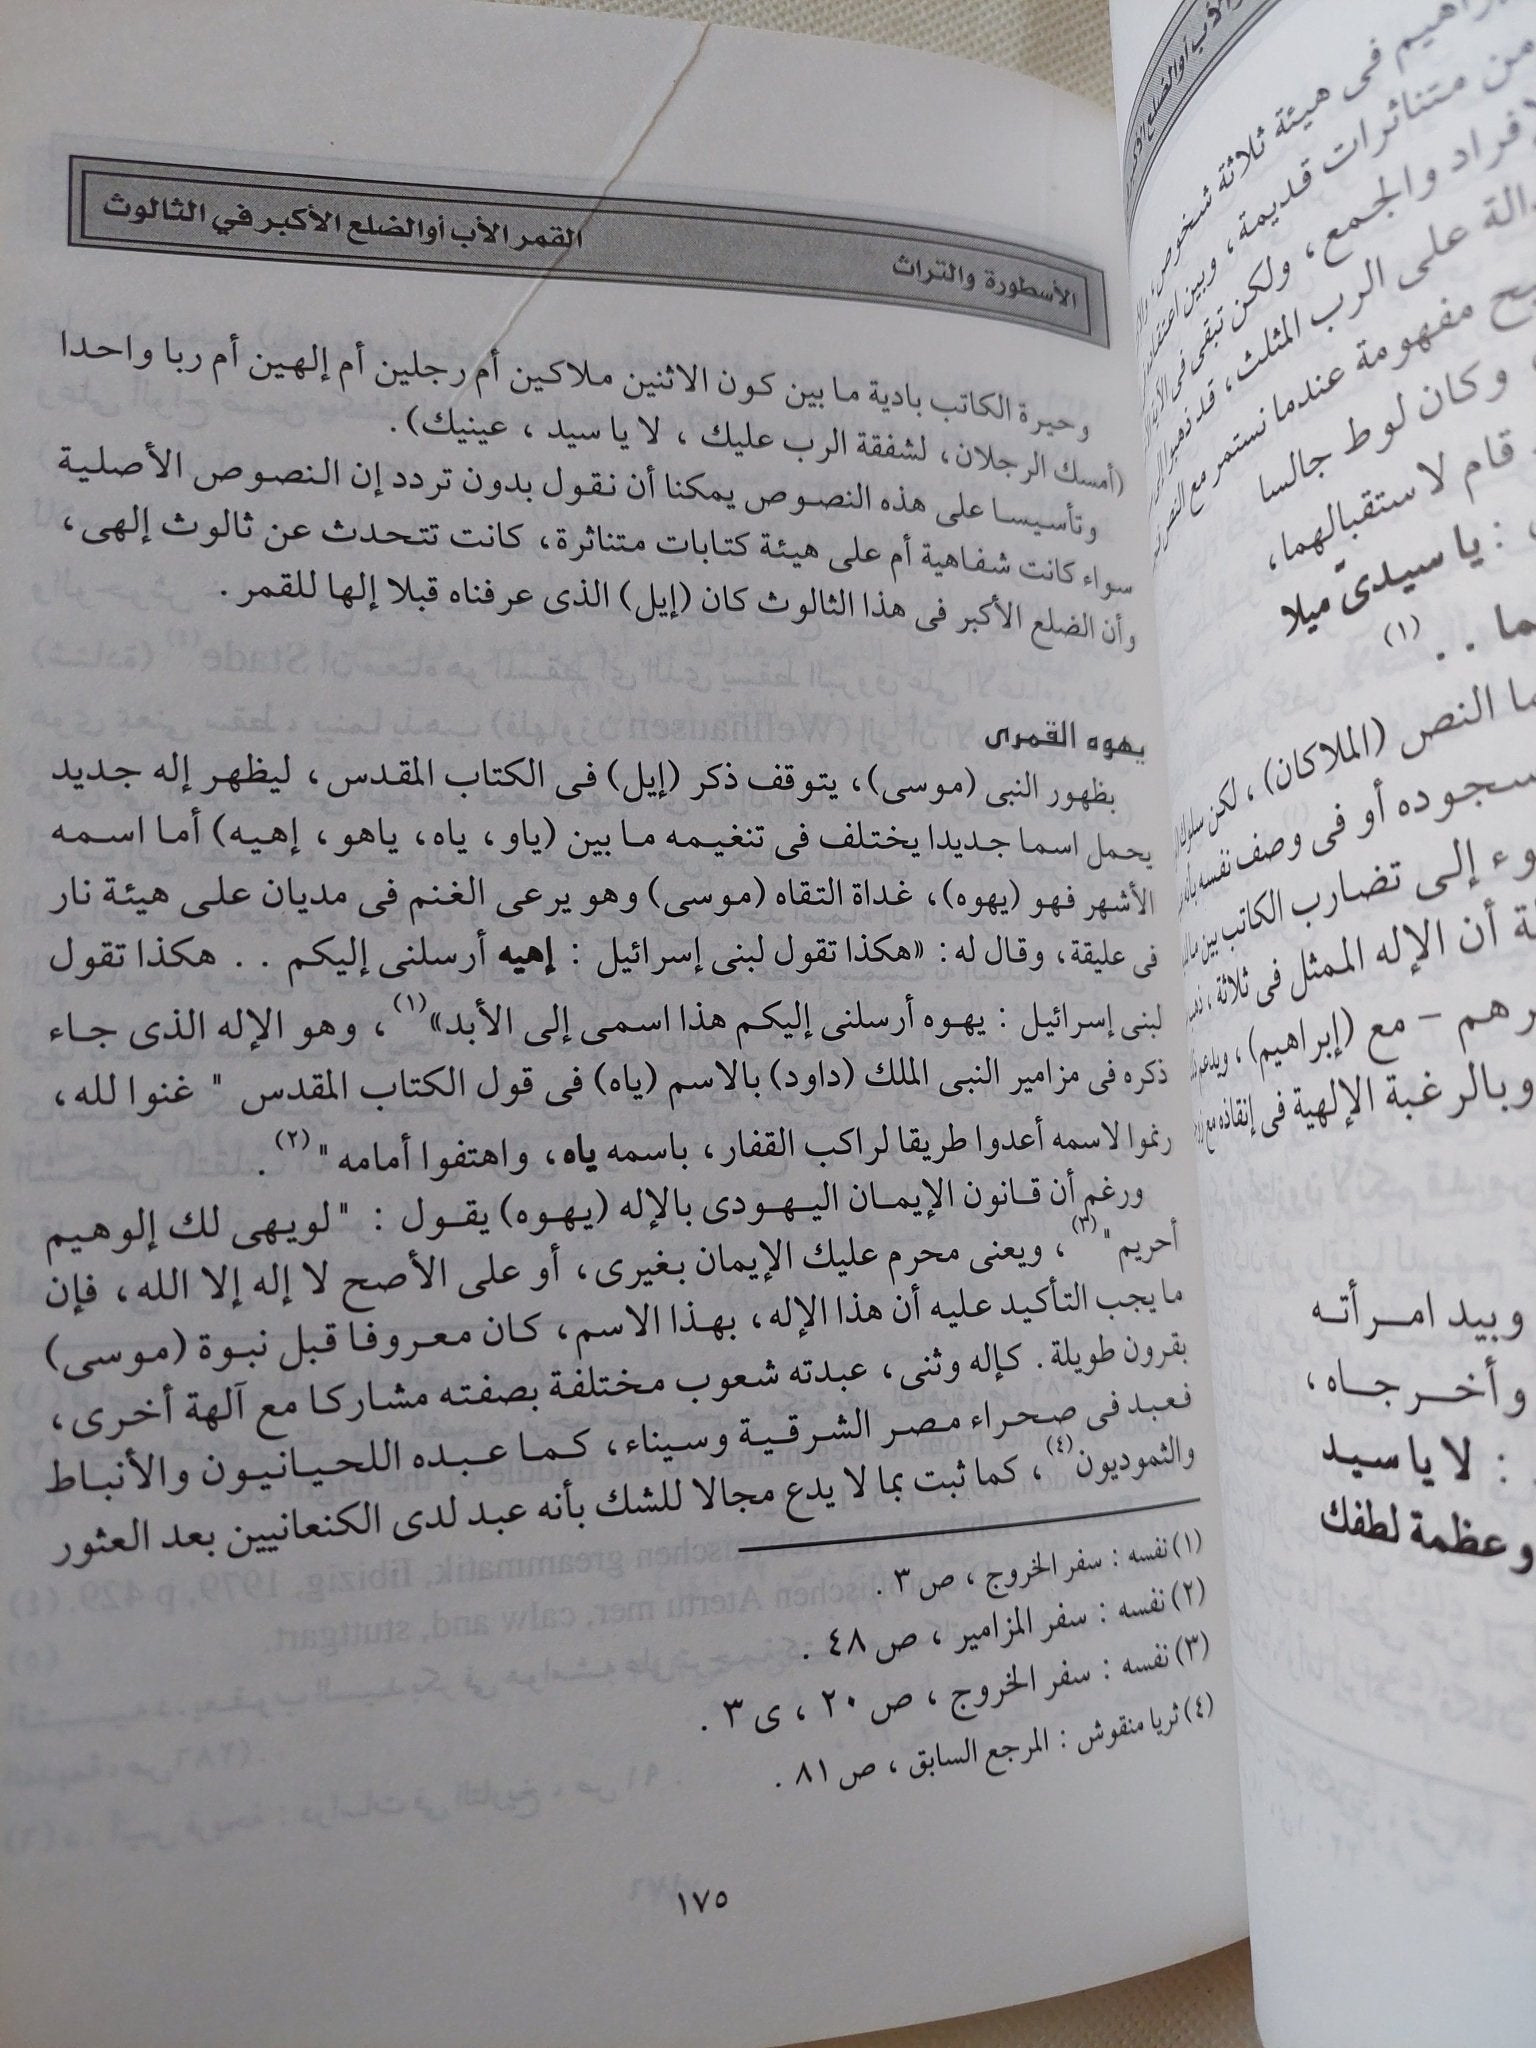 الأسطورة والتراث
القمر الأب أو الضلع الأكبر في الثالوث
وحيرة الكاتب بادية ما بين كون الاثنين ملاكين أم رجلين أم إلهين أم ربا واحدا
(أمسك الرجلان، لشفقة الرب عليك ، لا يا سيد ، عينيك) .
وتأسيسا على هذه النصوص يمكنا أن نقول بدون تردد إن النصوص الأصلية
سواء كانت شفاهية أم على هيئة كتابات متناثرة، كانت تتحدث عن ثالوث إلهى،
وأن الضلع الأكبر فى هذا الثالوث كان (إيل) الذى عرفناه قبلا إلها للقمر .
يهوه القمرى
بظهور النبى (موسى)، يتوقف ذكر (إيل) فى الكتاب المقدس، ليظهر إله جديد
يحمل اسما جديدا يختلف فى تنغيمه ما بين (ياو، ياه، ياهو، إهيه) أما اسمه
الأشهر فهو (يهوه)، غداة التقاه (موسى) وهو يرعى الغنم فى مديان على هيئة نار
فى عليقة، وقال له: «هكذا تقول لبنى إسرائيل : إهيه أرسلنى إليكم . . هكذا تقول
لبنى إسرائيل : يهوه أرسلنى إليكم هذا اسمى إلى الأبد»(١)، وهو الإله الذى جاء
ذكره فى مزامير النبى الملك (داود) بالاسم (ياه) فى قول الكتاب المقدس " غنوا لله،
رنموا لاسمه أعدوا طريقا لراكب القفار، باسمه ياه، واهتفوا أمامه "(٢) .
ورغم أن قانون الإيمان اليهودى بالإله (يهوه) يقول : " لويهى لك إلوهيم
أحريم "(٣)، ويعنى محرم عليك الإيمان بغيرى، أو على الأصح لا إله إلا الله، فإن
ما يجب التأكيد عليه أن هذا الإله، بهذا الاسم، كان معروفا قبل نبوة (موسى)
بقرون طويلة. كإله وثنى، عبدته شعوب مختلفة بصفته مشاركا مع آلهة أخرى،
فعبد فى صحراء مصر الشرقية وسيناء، كما عبده اللحيانيون والأنباط
والثموديون(٤)، كما ثبت بما لا يدع مجالا للشك بأنه عبد لدى الكنعانيين بعد العثور
(١) نفسه : سفر الخروج ، ص ٣ .
(٢) نفسه : سفر المزامير ، ص ٤٨ .
(٣) نفسه : سفر الخروج ، ص ٢٠ ، ى ٣ .
(٤) ثريا منقوش : المرجع السابق ، ص ٨١ .
١٧٥
فى هيئة ثلاثة شخوص،
من متناثرات قديمة، وبين
والجمع، ولكن تبقى فى
على الرب المثلث، قد ذهبوا إلى
مفهومة عندما نستمر مع النص
وكان لوط جالسا
قام لاستقبالهما،
: يا سيدىّ ميلا
. . (١)
النص (الملاكان)، لكن سلوك
أو فى وصف نفسه
إلى تضارب الكاتب بين
أن الإله الممثل فى ثلاثة،
– مع (إبراهيم)،
وبالرغبة الإلهية فى إنقاذه مع
وبيد امرأته
وأخرجاه،
: لا يا سيد
وعظمة لطفك